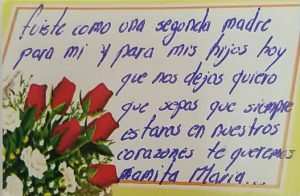 fuiste como una segunda madre
para mi y para mis hijos hoy
que nos dejas quiero
que sepas que siempre
estaras en nuestros
corazones te queremos
mamita Maria...